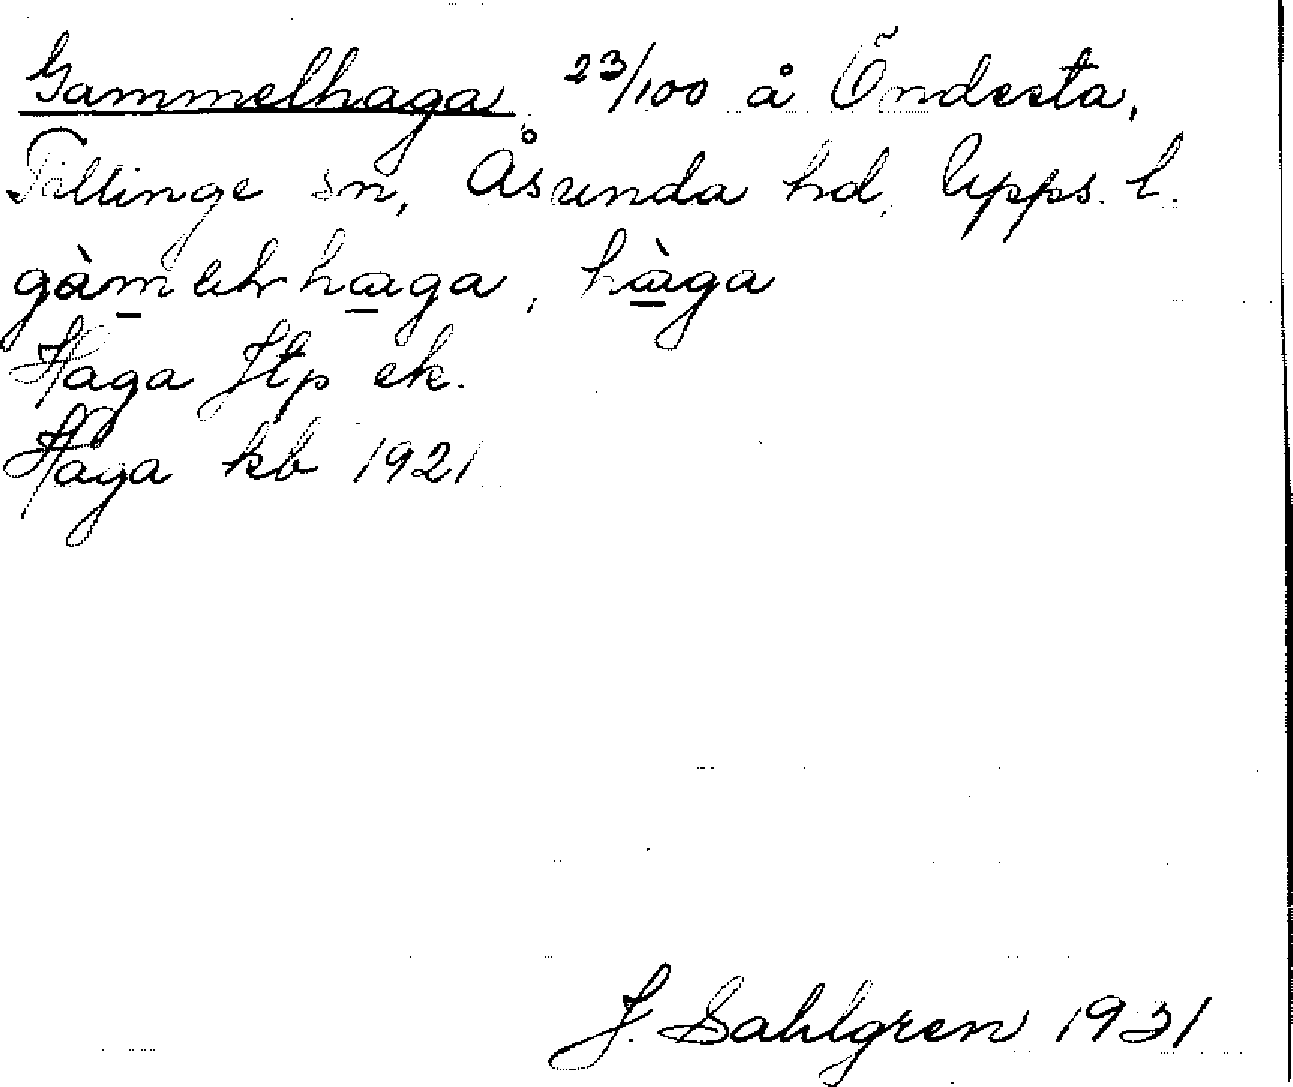 Gammelhaga 23/100 å Öndesta,
Tillinge sn, Åsunda hd, Upps. l.
haga, hàga
Haga Jtp ek.
Haga kb 1921
J. Sahlgren 1931